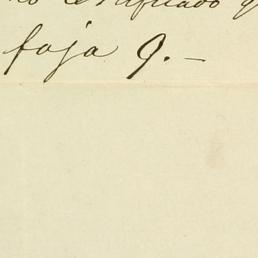 certificado
foja 9.—